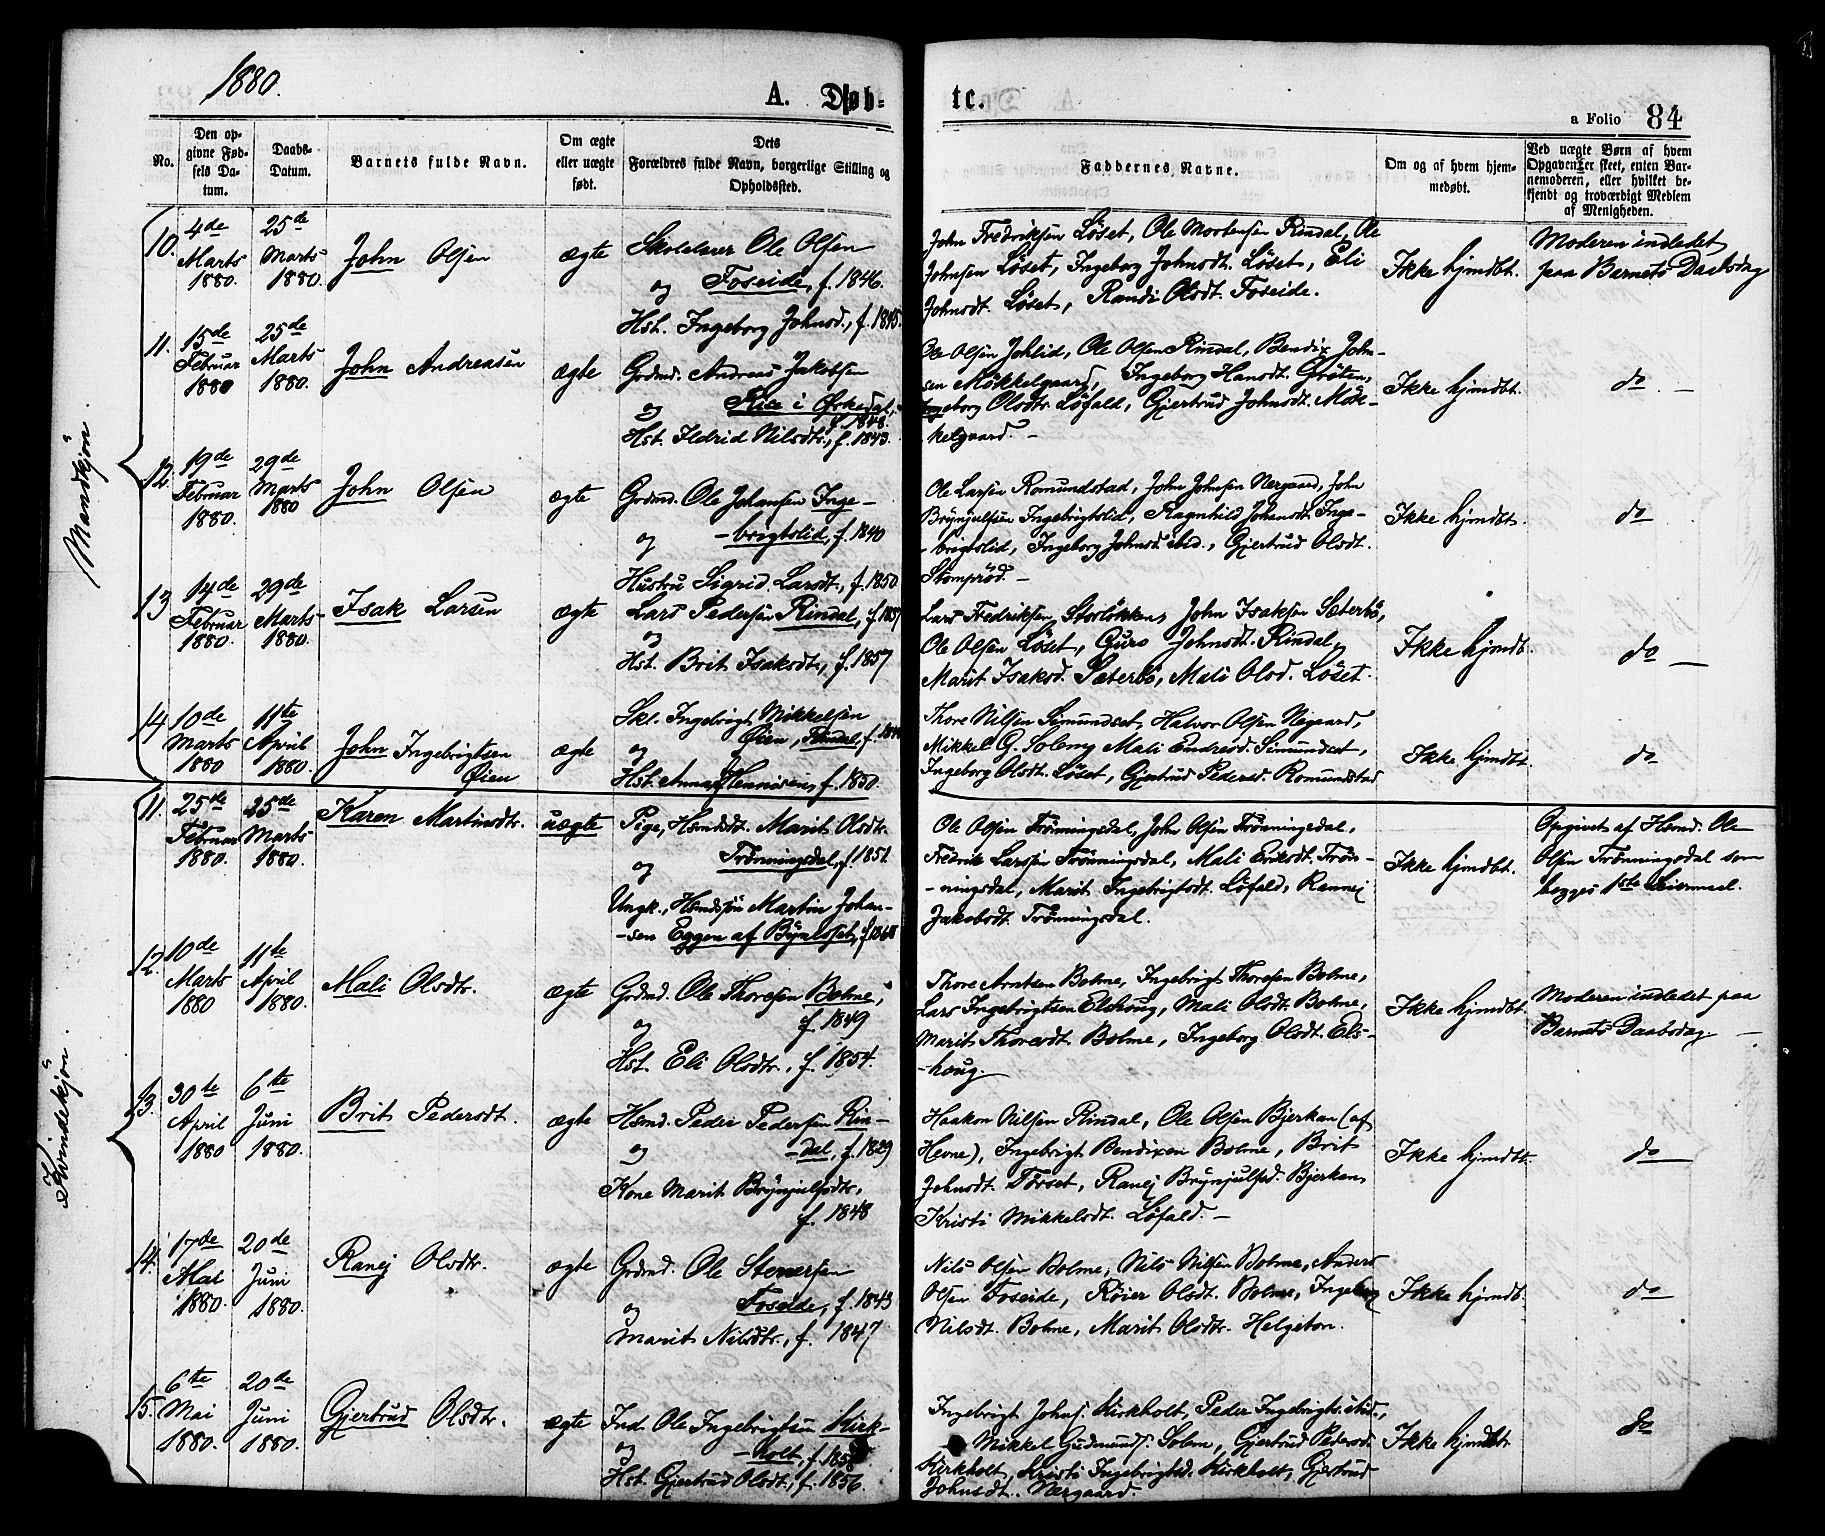 1880.
A. Døb-
tc.
a Folio 84
No.
Den op-
givne Fød-
sels Da-
tum.
Daabs-
Datum.
Barnets fulde Navn.
Om ægte
eller uægte
født.
Dets
Forældres fulde Navn, borgerlige Stilling og
Opholdssted.
Faddernes Navne.
Om og af hvem hjem-
medøbt.
Ved uægte Børn af hvem
Opgaven er skeet, enten Bar-
nemoderen, eller hvilket be-
kjendt og troværdigt Medlem
af Menigheden.
Mandkjøn
10.
4de
Marts
1880.
25de
Marts
1880.
John Olsen
ægte
Skolelærer Ole Olsen
og Foseide, f. 1846.
Hst. Ingeborg Johnsd., f. 1845.
John Fredriksen Löset, Ole Mortensen Rindal, Ole
Johnsen Löset, Ingeborg Johnsdt. Löset, Eli
Johnsdt. Löset, Randi Olsdt. Foseide.
Ikke hjmdbt.
Moderen indledet
paa Barnets Daabsdag
11.
15de
Februar
1880
25de
Marts
1880.
John Andreasen
ægte
Grdmd. Andreas Jakobsen
og Rise i Ørkedal,
f. 1848.
Hst. Ildrid Nilsdtr., f. 1843.
Ole Olsen Johlid, Ole Olsen Rindal, Bendix John-
sen Møkkelgaard, Ingeborg Hansdt. Gröten,
Ingeborg Olsdtr. Löfald, Gjertrud Johnsdt. Møk-
kelgaard. -
Ikke hjmdbt.
do -
12.
19de
Februar
1880.
29de
Marts
1880
John Olsen
ægte
Grdmd. Ole Johansen Inge-
og -brigtslid, f. 1840
Hustru Sigrid Larsdt., f. 1850
Ole Larsen Romundstad, John Johnsen Nergaard, John
Brynjulfsen Ingebrigtslid, Ragnhild Johansdt. Inge-
-brigtslid, Ingeborg Johnsd. ibid., Gjertrud Olsdt.
Stomprød. -
Ikke hjmdbt.
do
13
14de
Februar
1880.
29de
Marts
1880.
Isak Larsen
ægte
Lars Pedersen Rindal, f. 1857
og
Hst. Brit Isaksdt., f. 1857
Lars Fredriksen Storløkken, John Isaksen Sæterbö,
Ole Olsen Löset, Guro Johnsdt. Rindal,
Marit Isaksd. Sæterbö, Mali Olsd. Löset.
Ikke hjmdt.
do -
14
10de
Marts
1880
11te
April
1880.
John Ingebrigtsen
Øien
ægte
Skl. Ingebrigt Mikkelsen
og Øien, Rindal, f.
Hst. Anna Hennisen, f. 1850.
Thore Nilsen Simundset, Halvor Olsen Negaard,
Mikkel G. Solemy Mali Endresd. Simundset,
Ingeborg Olsdt. Löset, Gjertrud Pedersd. Romundstad
Ikke hjmdbt.
do
Kvindekjøn
11.
25de
Februar
1880.
25de
Marts
1880.
Karen Martinsdtr.
uægte
Pige, Hsmdsdt. Marit Olsdtr.
og Trønningsdal, f. 1851.
Ungk., Hsmdssön Martin Johan-
-sen Eggen af Bynæsset,
Ole Olsen Trønningsdal, John Olsen Trønningsdal,
Fredrik Larssen Trønningsdal, Mali Eriksdt. Trøn-
-ningsdal, Marit Ingebrigtsdt. Löfald, Rannej
Jakobsdt. Trønningsdal.
Ikke hjmdbt.
Opgivet af Hsmd. Ole
Olsen Trønningsdal som
begges 1ste Leiermaal.
12.
10de
Marts
1880
11te
April
1880.
Mali Olsdtr.
ægte
Grdmd. Ole Thoresen Bolme,
og f. 1849
Hst. Eli Olsdtr., f. 1854.
Thore Arntsen Bolme, Ingebrigt Thoresen Bolme,
Lars Ingebrigtsen Elshoug, Mali Olsdt. Bolme,
Marit Thoresdt. Bolme, Ingeborg Olsdt. Els-
-houg.
Ikke hjmdbt.
Moderen indledet paa
Barnets Daabsdag. -
13.
30te
April
1880
6te
Juni
1880.
Brit Pedersdt.
ægte
Hsmd. Peder Pedersen Rin-
og -dal, f. 1829
Kone Marit Brynjulfsdtr.,
f. 1848
Haakon Nilsen Rindal, Ole Olsen Bjerkan (af
Hevne), Ingebrigt Bendixen Bolme, Brit
Johnsdt. Törset, Ranej Brynjulfsd. Bjerkan,
Kristi Mikkelsdt. Löfald. -
Ikke hjmdbt.
do
14.
17de
Mai
1880.
20de
Juni
1880.
Ranej Olsdtr.
ægte
Grdmd. Ole Stenersen
og Foseide, f. 1843
Marit Nilsdtr., f. 1847
Nils Olsen Bolme, Nils Nilsen Bolme, Anders
Olsen Foseide, Røier Olsdt. Bolme, Ingeborg
Nilsdt. Bolme, Marit Olsdtr. Helgeton.
Ikke hjmdbt.
do
15.
6te
Mai
1880.
20de
Juni
1880.
Gjertrud Olsdtr.
ægte
Ind. Ole Ingebrigtsen Kirk-
og -holt, f. 1858
Hst. Gjertrud Olsdt., f. 1856.
Ingebrigt Johns. Kirkholt, Peder Ingebrigts. ibid.,
Mikkel Gudmunds. Solem, Gjertrud Pedersd.
Kirkholt, Kristi Ingebrigtsd. Kirkholt, Gjertrud
Johnsdt. Nergaard.
Ikke hjmdbt
do